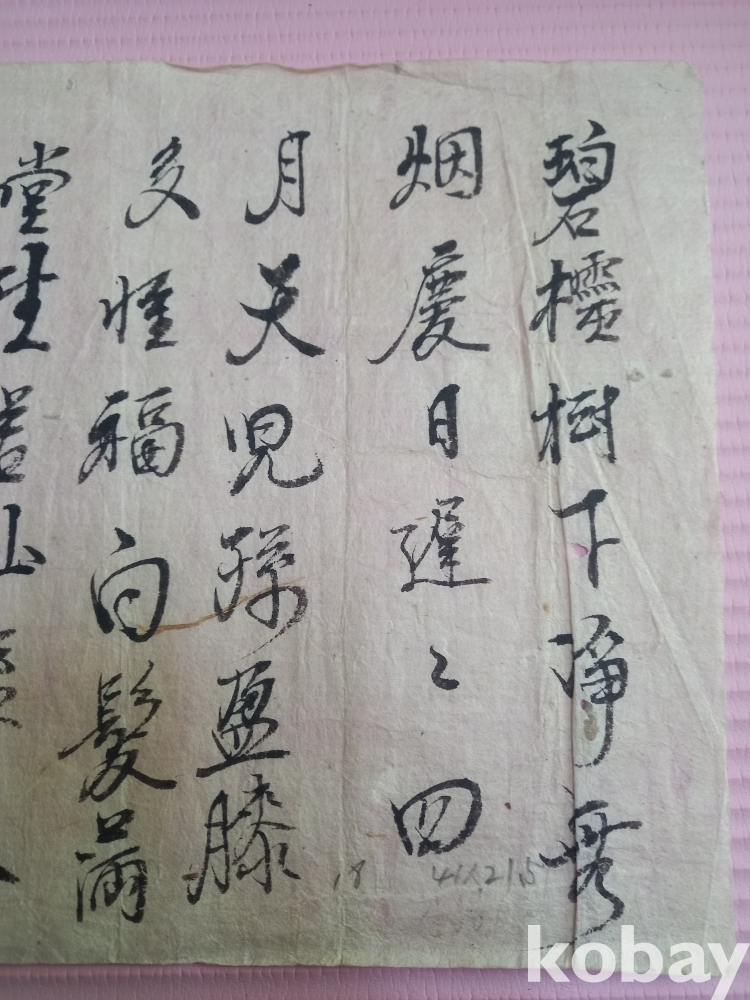 碧欞樹下淨無
烟慶日遲〻四
月天兒孫盈膝
多福白髮滿
堂
18
41x21.5
kobay